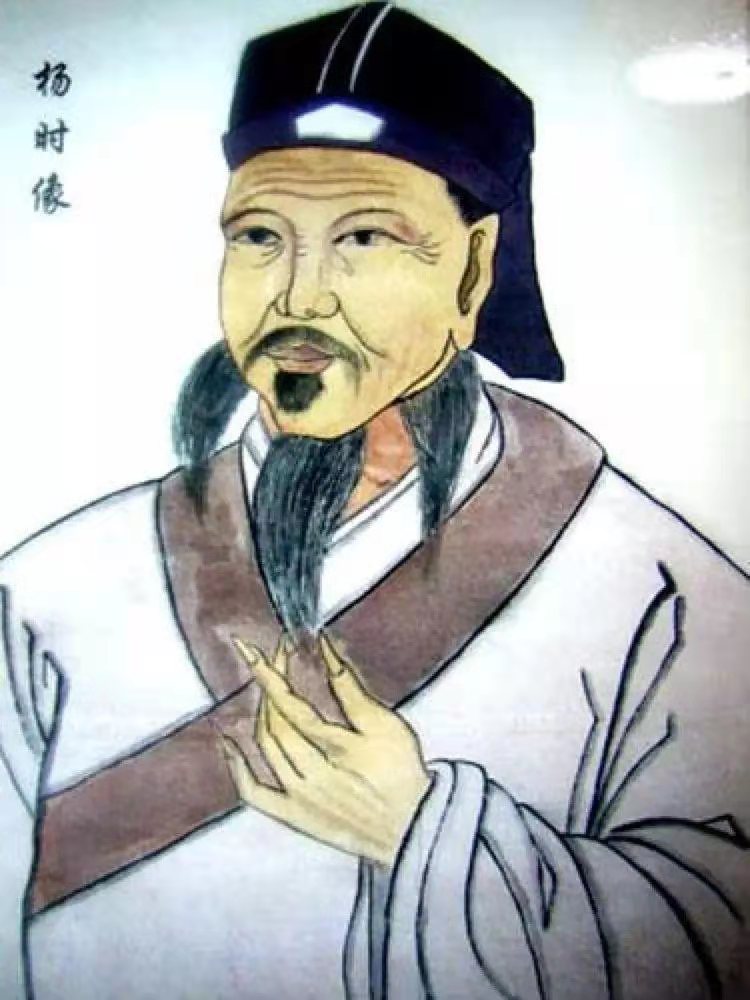 杨时像